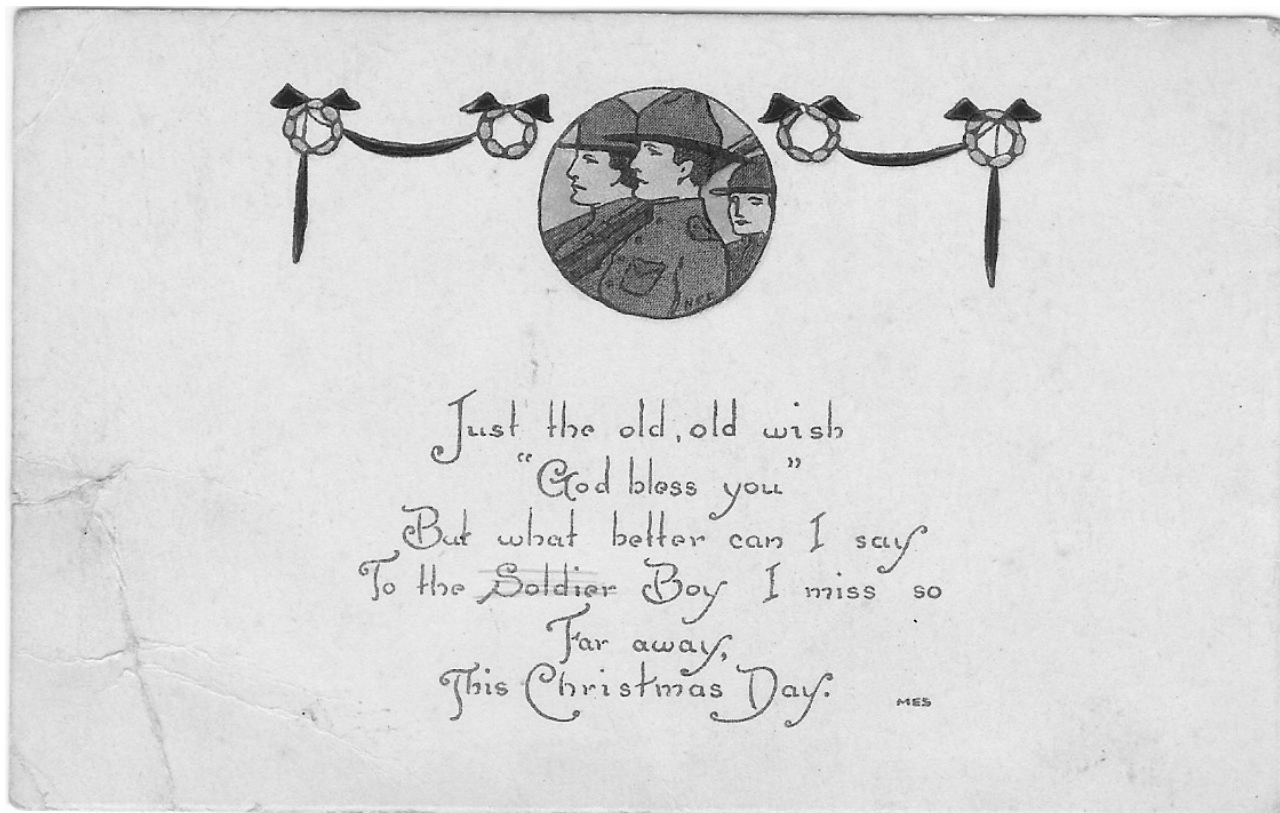 Just the old, old wish
"God bless you"
But what better can I say
To the Soldier Boy I miss so
Far away,
This Christmas Day.
MES